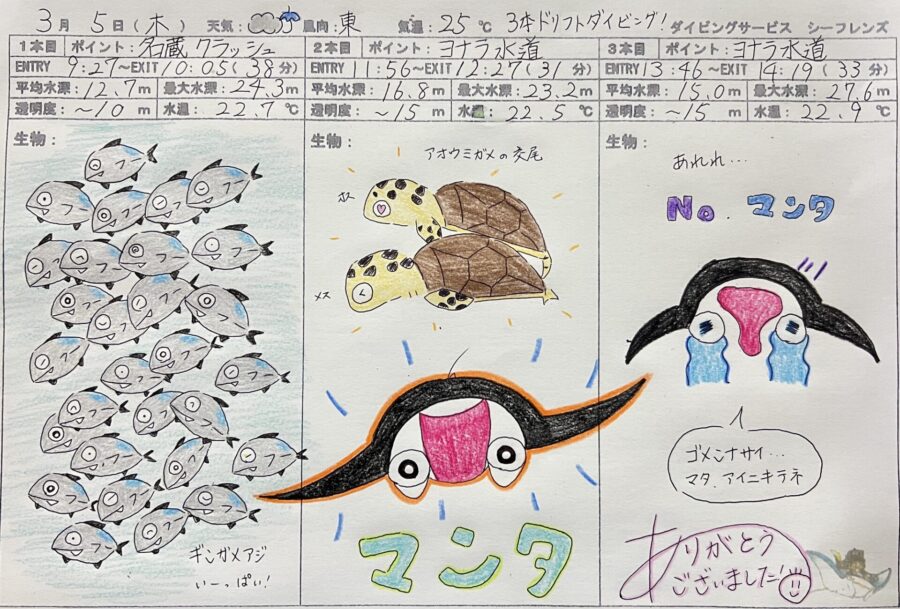 3月 5日(木) 天気: 風向:東 気温:25℃ 3本ドリフトダイビング! ダイビングサービス シーフレンズ
1本目 ポイント:名蔵クラッシュ
ENTRY 9:27~EXIT 10:05(38分)
平均水深:12.7m 最大水深:24.3m
透明度:~10m 水温:22.7℃
生物:
ギンガメアジ
いーっぱい!
2本目 ポイント:ヨナラ水道
ENTRY 11:56~EXIT 12:27(31分)
平均水深:16.8m 最大水深:23.2m
透明度:~15m 水温:22.5℃
生物:
アオウミガメの交尾
オス
メス
マンタ
3本目 ポイント:ヨナラ水道
ENTRY 13:46~EXIT 14:19(33分)
平均水深:15.0m 最大水深:27.6m
透明度:~15m 水温:22.9℃
生物:
あれれ...
No. マンタ
ゴメンナサイ...
マタ アイニキテネ
ありがとう
ございました!